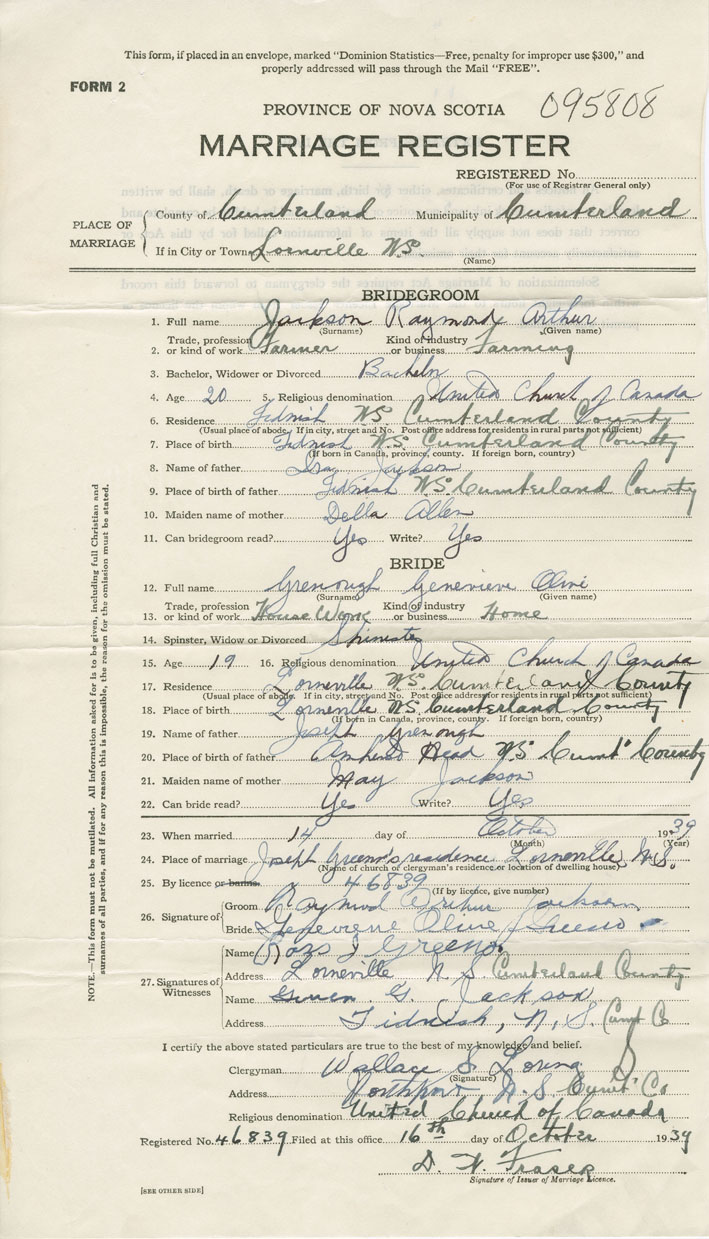 This form, if placed in an envelope, marked "Dominion Statistics—Free, penalty for improper use $300," and
properly addressed will pass through the Mail "FREE".
FORM 2
095808
PROVINCE OF NOVA SCOTIA
MARRIAGE REGISTER
REGISTERED No.
(For use of Registrar General only)
PLACE OF MARRIAGE
County of Cumberland Municipality of Cumberland
If in City or Town Lornville N.S.
(Name)
BRIDEGROOM
1. Full name Jackson Raymond Arthur
(Surname) (Given name)
2. Trade, profession or kind of work Farmer Kind of industry or business Farming
3. Bachelor, Widower or Divorced Bachelor
4. Age 20 5. Religious denomination United Church of Canada
6. Residence Tidnish N.S. Cumberland County
(Usual place of abode. If in city, street and No. Post office address for residents in rural parts not sufficient)
7. Place of birth Tidnish N.S. Cumberland County
(If born in Canada, province, county. If foreign born, country)
8. Name of father Ira Jackson
9. Place of birth of father Tidnish N.S. Cumberland County
10. Maiden name of mother Della Allen
11. Can bridegroom read? Yes Write? Yes
BRIDE
12. Full name Grenough Genevieve Olive
(Surname) (Given name)
13. Trade, profession or kind of work House Work Kind of industry or business Home
14. Spinster, Widow or Divorced Spinster
15. Age 19 16. Religious denomination United Church of Canada
17. Residence Lorneville N.S. Cumberland County
(Usual place of abode. If in city, street and No. Post office address for residents in rural parts not sufficient)
18. Place of birth Lorneville N.S. Cumberland County
(If born in Canada, province, county. If foreign born, country)
19. Name of father Joseph Grenough
20. Place of birth of father Amherst Head N.S. Cumb' County
21. Maiden name of mother May Jackson
22. Can bride read? Yes Write? Yes
23. When married 14 day of October 1939
(Month) (Year)
24. Place of marriage Joseph Greeno's residence Lorneville, N.S.
(Name of church of clergyman's residence or location of dwelling house)
25. By licence or banns 46839
(If by licence, give number)
26. Signature of
Groom Raymond Arthur Jackson
Bride Genevieve Olive Greeno
27. Signatures of Witnesses
Name Ross J Greeno
Address Lorneville N.S. Cumberland County
Name Gwen. G. Jackson
Address Tidnish, N.S. Cumb Co
I certify the above stated particulars are true to the best of my knowledge and belief.
Clergyman Wallace S. Loring
(Signature)
Address Northport N.S. Cumb' Co
Religious denomination United Church of Canada
Registered No. 46839 Filed at this office 16th day of October 1939
D. W. Fraser
Signature of Issuer of Marriage Licence.
[SEE OTHER SIDE]
NOTE.—This form must not be mutilated. All information asked for is to be given, including full Christian and
surnames of all parties, and if for any reason this is impossible, the reason for the omission must be stated.